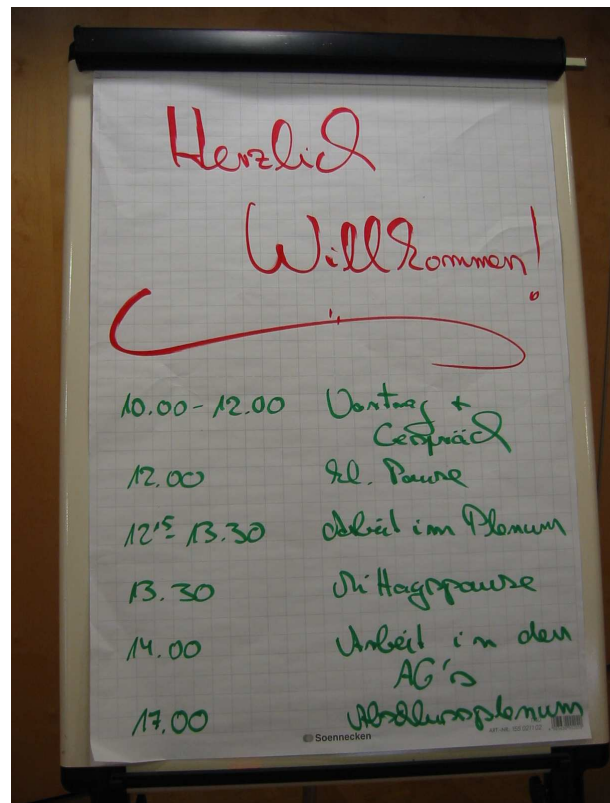 Herzlich
Willkommen!
10.00-12.00 Vortrag +
Gespräch
12.00 kl. Pause
12¹⁵- 13.30 Arbeit im Plenum
13.30 Mittagspause
14.00 Arbeit in den
AG's
17.00 Abschlussplenum
Soennecken